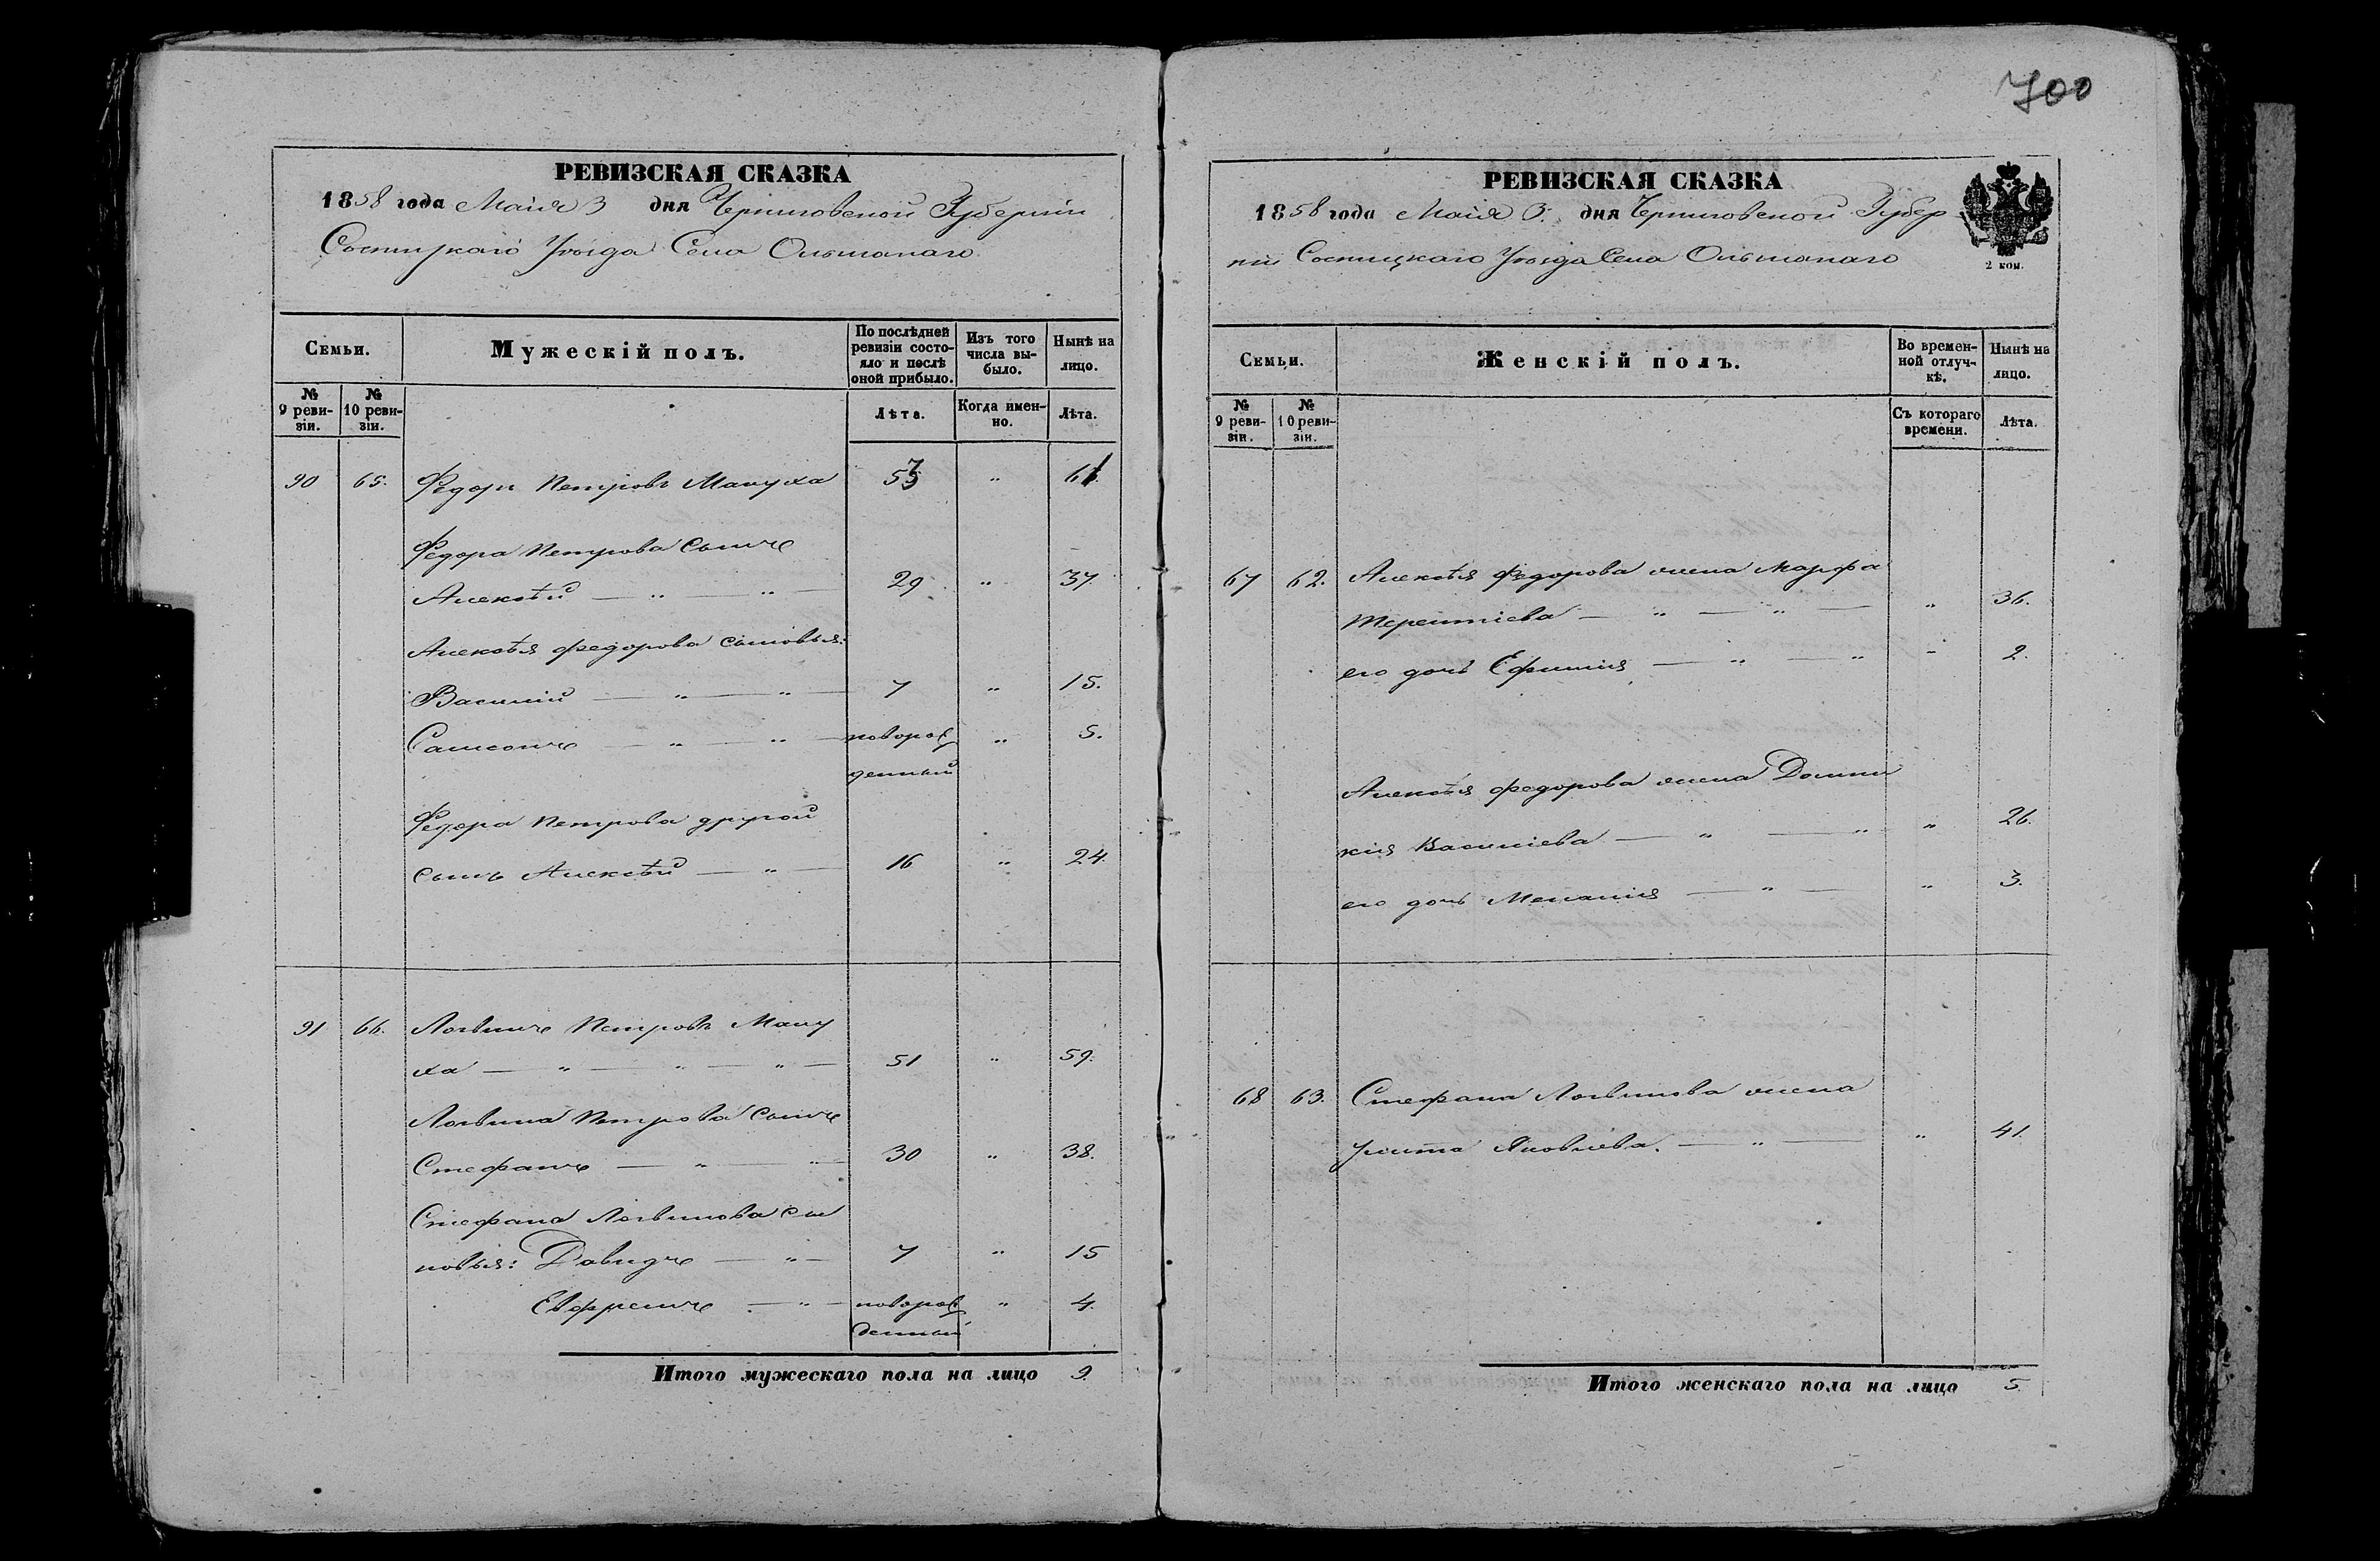 700
РЕВИЗСКАЯ СКАЗКА
1858 года Маія 3 дня Черниговской Губерніи
Сосницкаго Уѣзда Села Ольшанаго
Семьи.
Мужескій полъ.
По послѣдней ревизіи состояло и послѣ оной прибыло.
Изъ того числа выбыло.
Нынѣ на лицо.
№ 9 ревизіи.
№ 10 ревизіи.
Лѣта.
Когда именно.
Лѣта.
90 65. Федоръ Петровъ Мануха 53 „ 61.
Федора Петрова сынъ
Алексѣй — „ — „ — 29 „ 37.
Алексѣя Федорова сыновья:
Василій — „ — „ — 7 „ 15.
Самсонъ — „ — „ — новорож „ 5.
денный
Федора Петрова другой
сынъ Алексѣй — „ — 16 „ 24.
91 66. Логвинъ Петровъ Ману
ха — „ — „ — „ — 51 „ 59.
Логвина Петрова сынъ
Стефанъ — „ — „ 30 „ 38.
Стефана Логвинова сы
новья: Давидъ — „ — 7 „ 15
Евфремъ — „ — новорож „ 4.
денный
Итого мужескаго пола на лицо 9.
РЕВИЗСКАЯ СКАЗКА
1858 года Маія 3. дня Черниговской Губер
ніи Сосницкаго Уѣзда Села Ольшанаго
2 коп.
Семьи.
Женскій полъ.
Во временной отлучкѣ.
Нынѣ на лицо.
№ 9 ревизіи.
№ 10 ревизіи.
Съ котораго времени.
Лѣта.
67 62. Алексѣя Федорова жена Марфа
Терентіева — „ — „ — „ 36.
его дочь Ефимія — „ — „ „ 2.
Алексѣя Федорова жена Домни
кія Василіева — „ — „ „ 26.
его дочь Меланія — „ — „ 3.
68 63. Стефана Логвинова жена
Улита Яковлева. — „ — „ 41.
Итого женскаго пола на лицо 5.